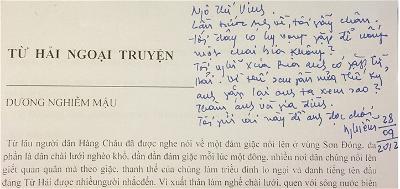 Ngô Thế Vinh
Lần trước anh về, tôi gãy chân.
Tôi đây có hy vọng gặp để uống
một chai bia không?
Tôi nghĩ xưa Rừa anh có gặp Từ
Hải. Vì thế sau năm mùa Thứ Kỷ
anh gặp lại anh ta xem sao?
Thăm anh và gia đình.
Tôi gửi cái này để anh đọc chơi
nghiêm 28
09
2012
TỪ HẢI NGOẠI TRUYỆN
DƯƠNG NGHIỄM MẬU
Từ lâu người dân Hàng Châu đã được nghe nói về một đám giặc nổi lên ở vùng Sơn Đông, đa
phần là dân chài lưới nghèo khổ, dần dần đám giặc mỗi lúc một đông, nhiều nơi dân chúng nổi lên
giết quan quân mà theo giặc, thanh thế của chúng làm triều đình lo ngại và danh tiếng tên đầu
đảng Từ Hải được nhiều người nhắc đến. Vì xuất thân làm nghề chài lưới, quen với sông nước biển